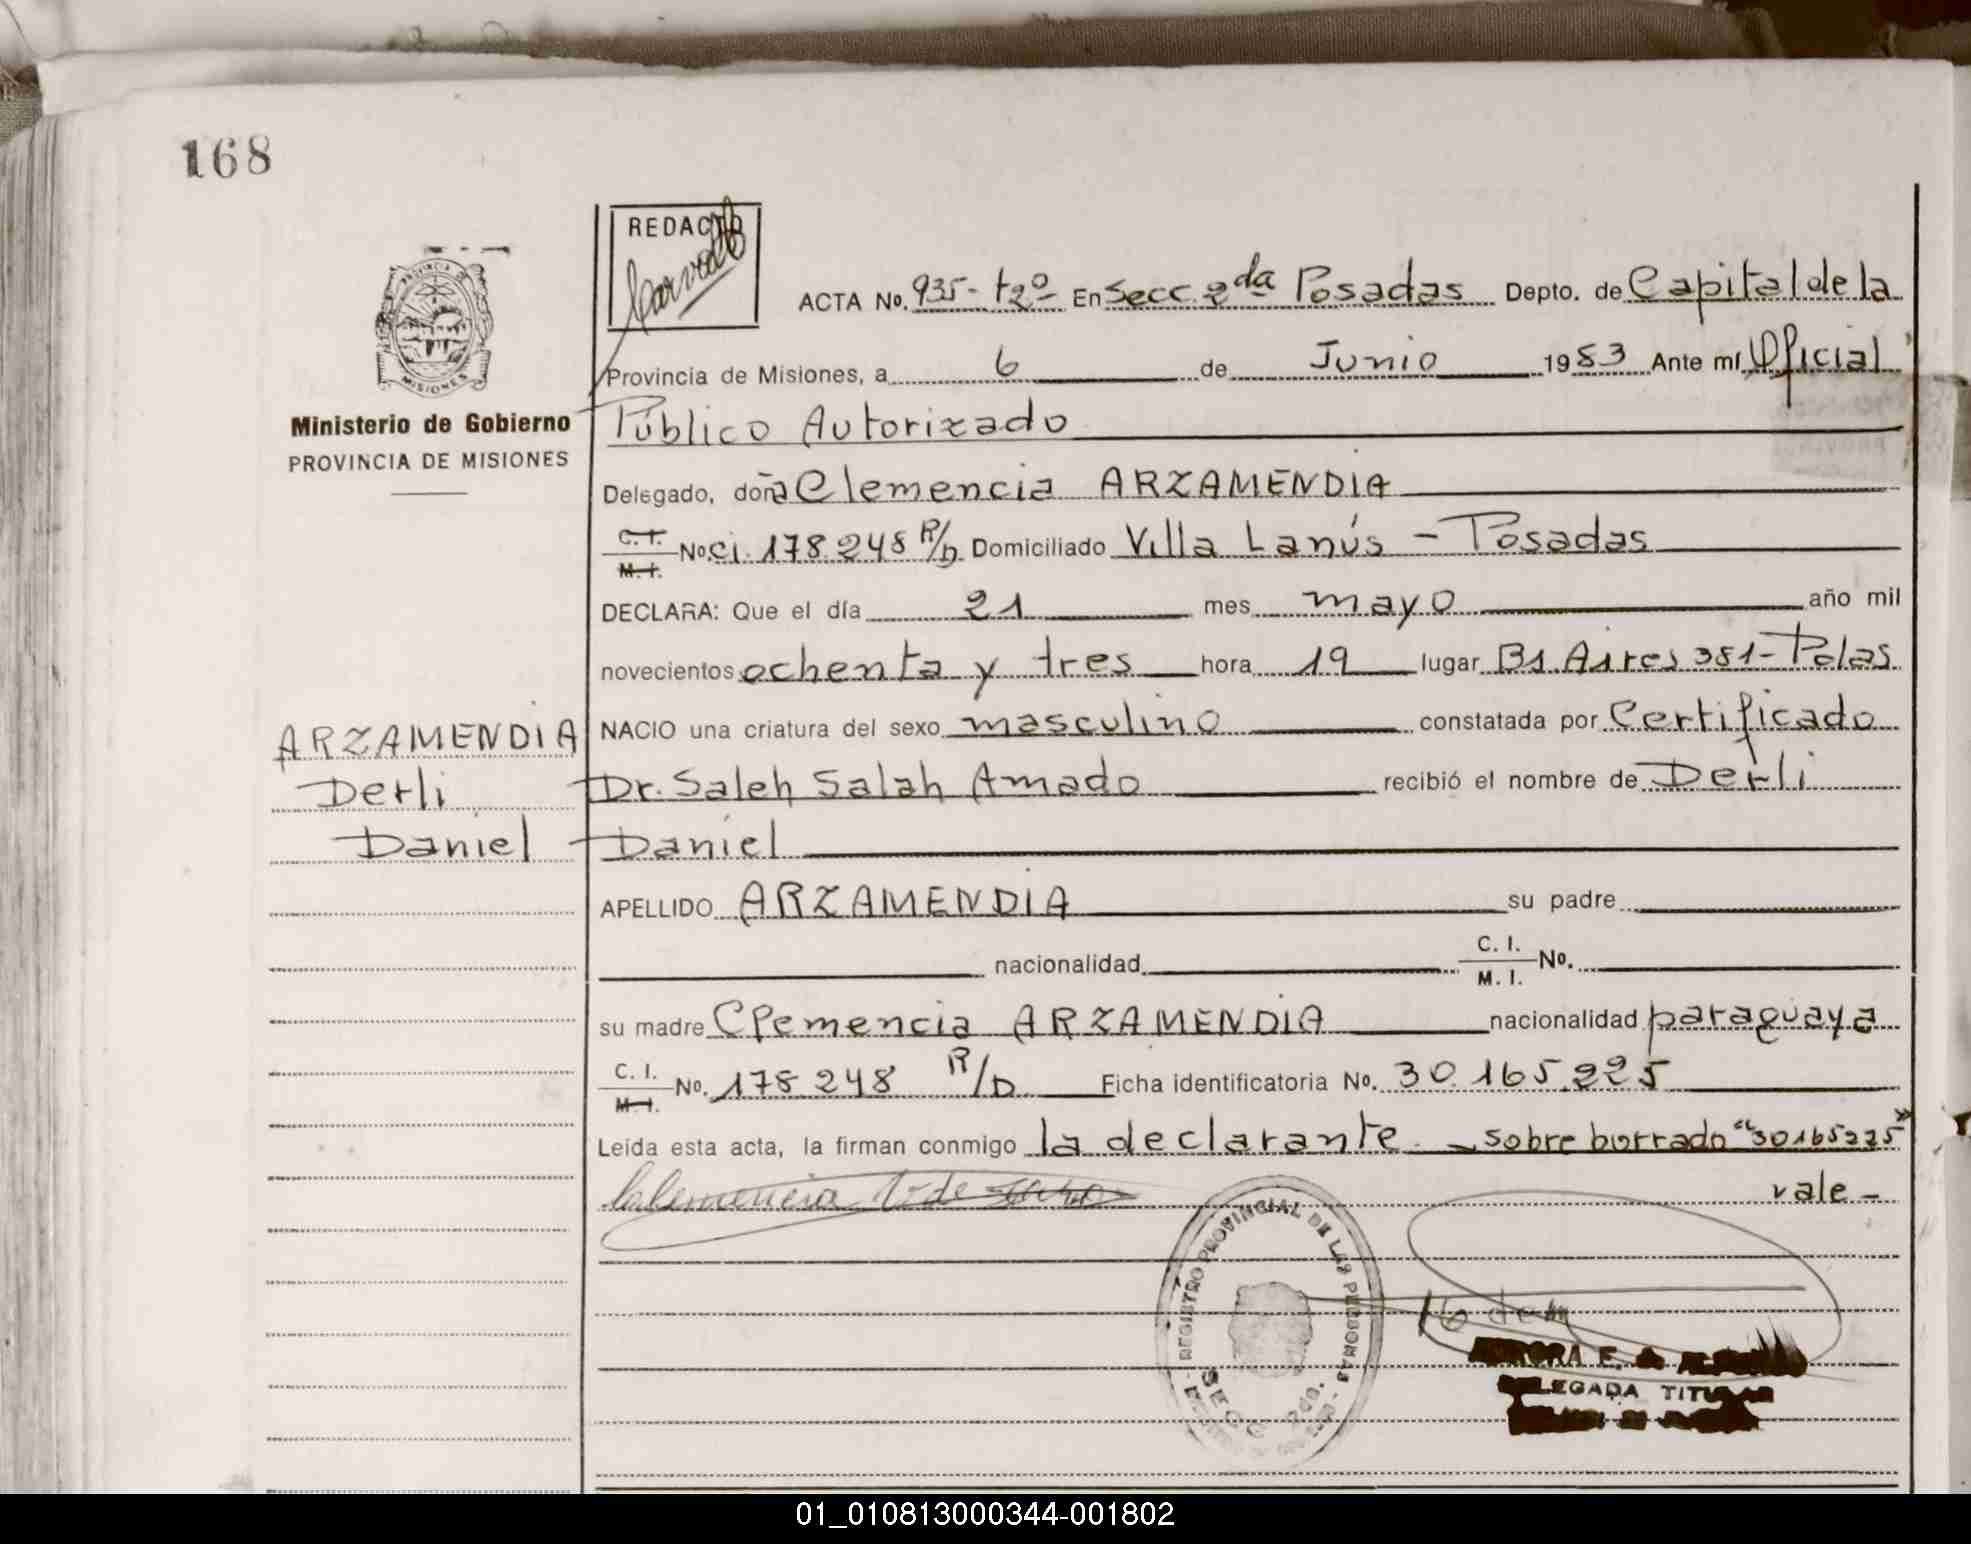 168
REDACTO
ACTA No. 935- tº2º En Secc. 2da Posadas Depto. de Capital de la
Provincia de Misiones, a 6 de Junio 1983 Ante mí Oficial
Público Autorizado
MISIONES
Ministerio de Gobierno
PROVINCIA DE MISIONES
Delegado, doña Clemencia ARZAMENDIA
C. I. M. I. No. ci. 178.248 R/D Domiciliado Villa Lanús - Posadas
DECLARA: Que el día 21 mes mayo año mil
novecientos ochenta y tres hora 19 lugar Bs Aires 381-Pdas
NACIO una criatura del sexo masculino constatada por Certificado
Dr. Saleh Salah Amado recibió el nombre de Derli
Daniel
ARZAMENDIA
Derli
Daniel
APELLIDO ARZAMENDIA su padre
nacionalidad C. I. M. I. No.
su madre Clemencia ARZAMENDIA nacionalidad paraguaya
C. I. M. I. No. 178 248 R/D Ficha identificatoria No. 30.165.225
Leída esta acta, la firman conmigo la declarante - sobre borrado "30165225"
vale -
REGISTRO PROVINCIAL DE LAS PERSONAS
SECC. 2da.
E. A.
DELEGADA TITULAR
01_010813000344-001802